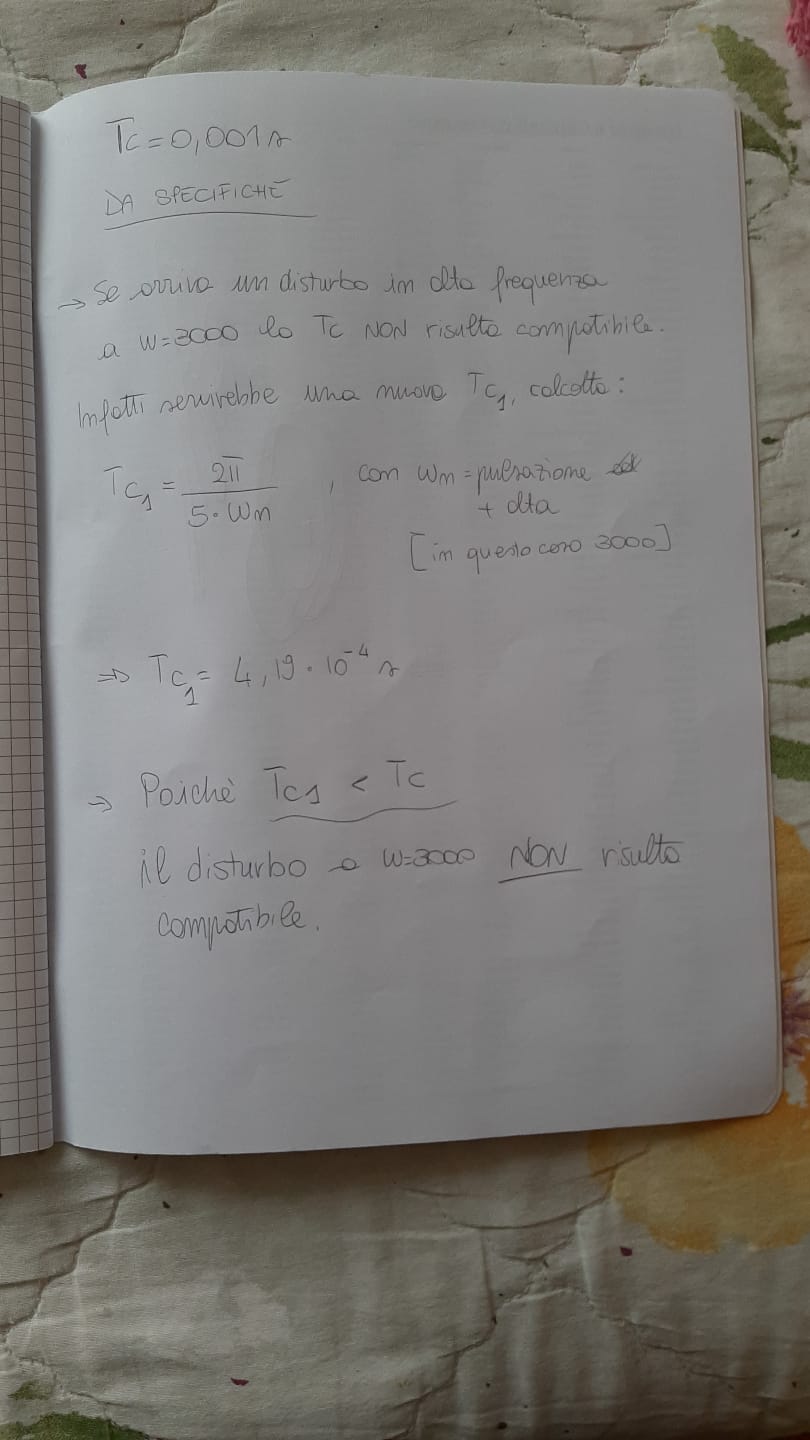 Tc = 0,001 s
DA SPECIFICHE
→ Se arriva un disturbo in alta frequenza
a W=3000 la Tc NON risulta compatibile.
Infatti servirebbe una nuova Tc₁, calcolata:
Tc₁ = 2π / 5·Wm , con Wm = pulsazione
+ alta
[in questo caso 3000]
⇒ Tc₁ = 4,19·10⁻⁴ s
⇒ Poichè Tc1 < Tc
il disturbo a W=3000 NON risulta
compatibile.